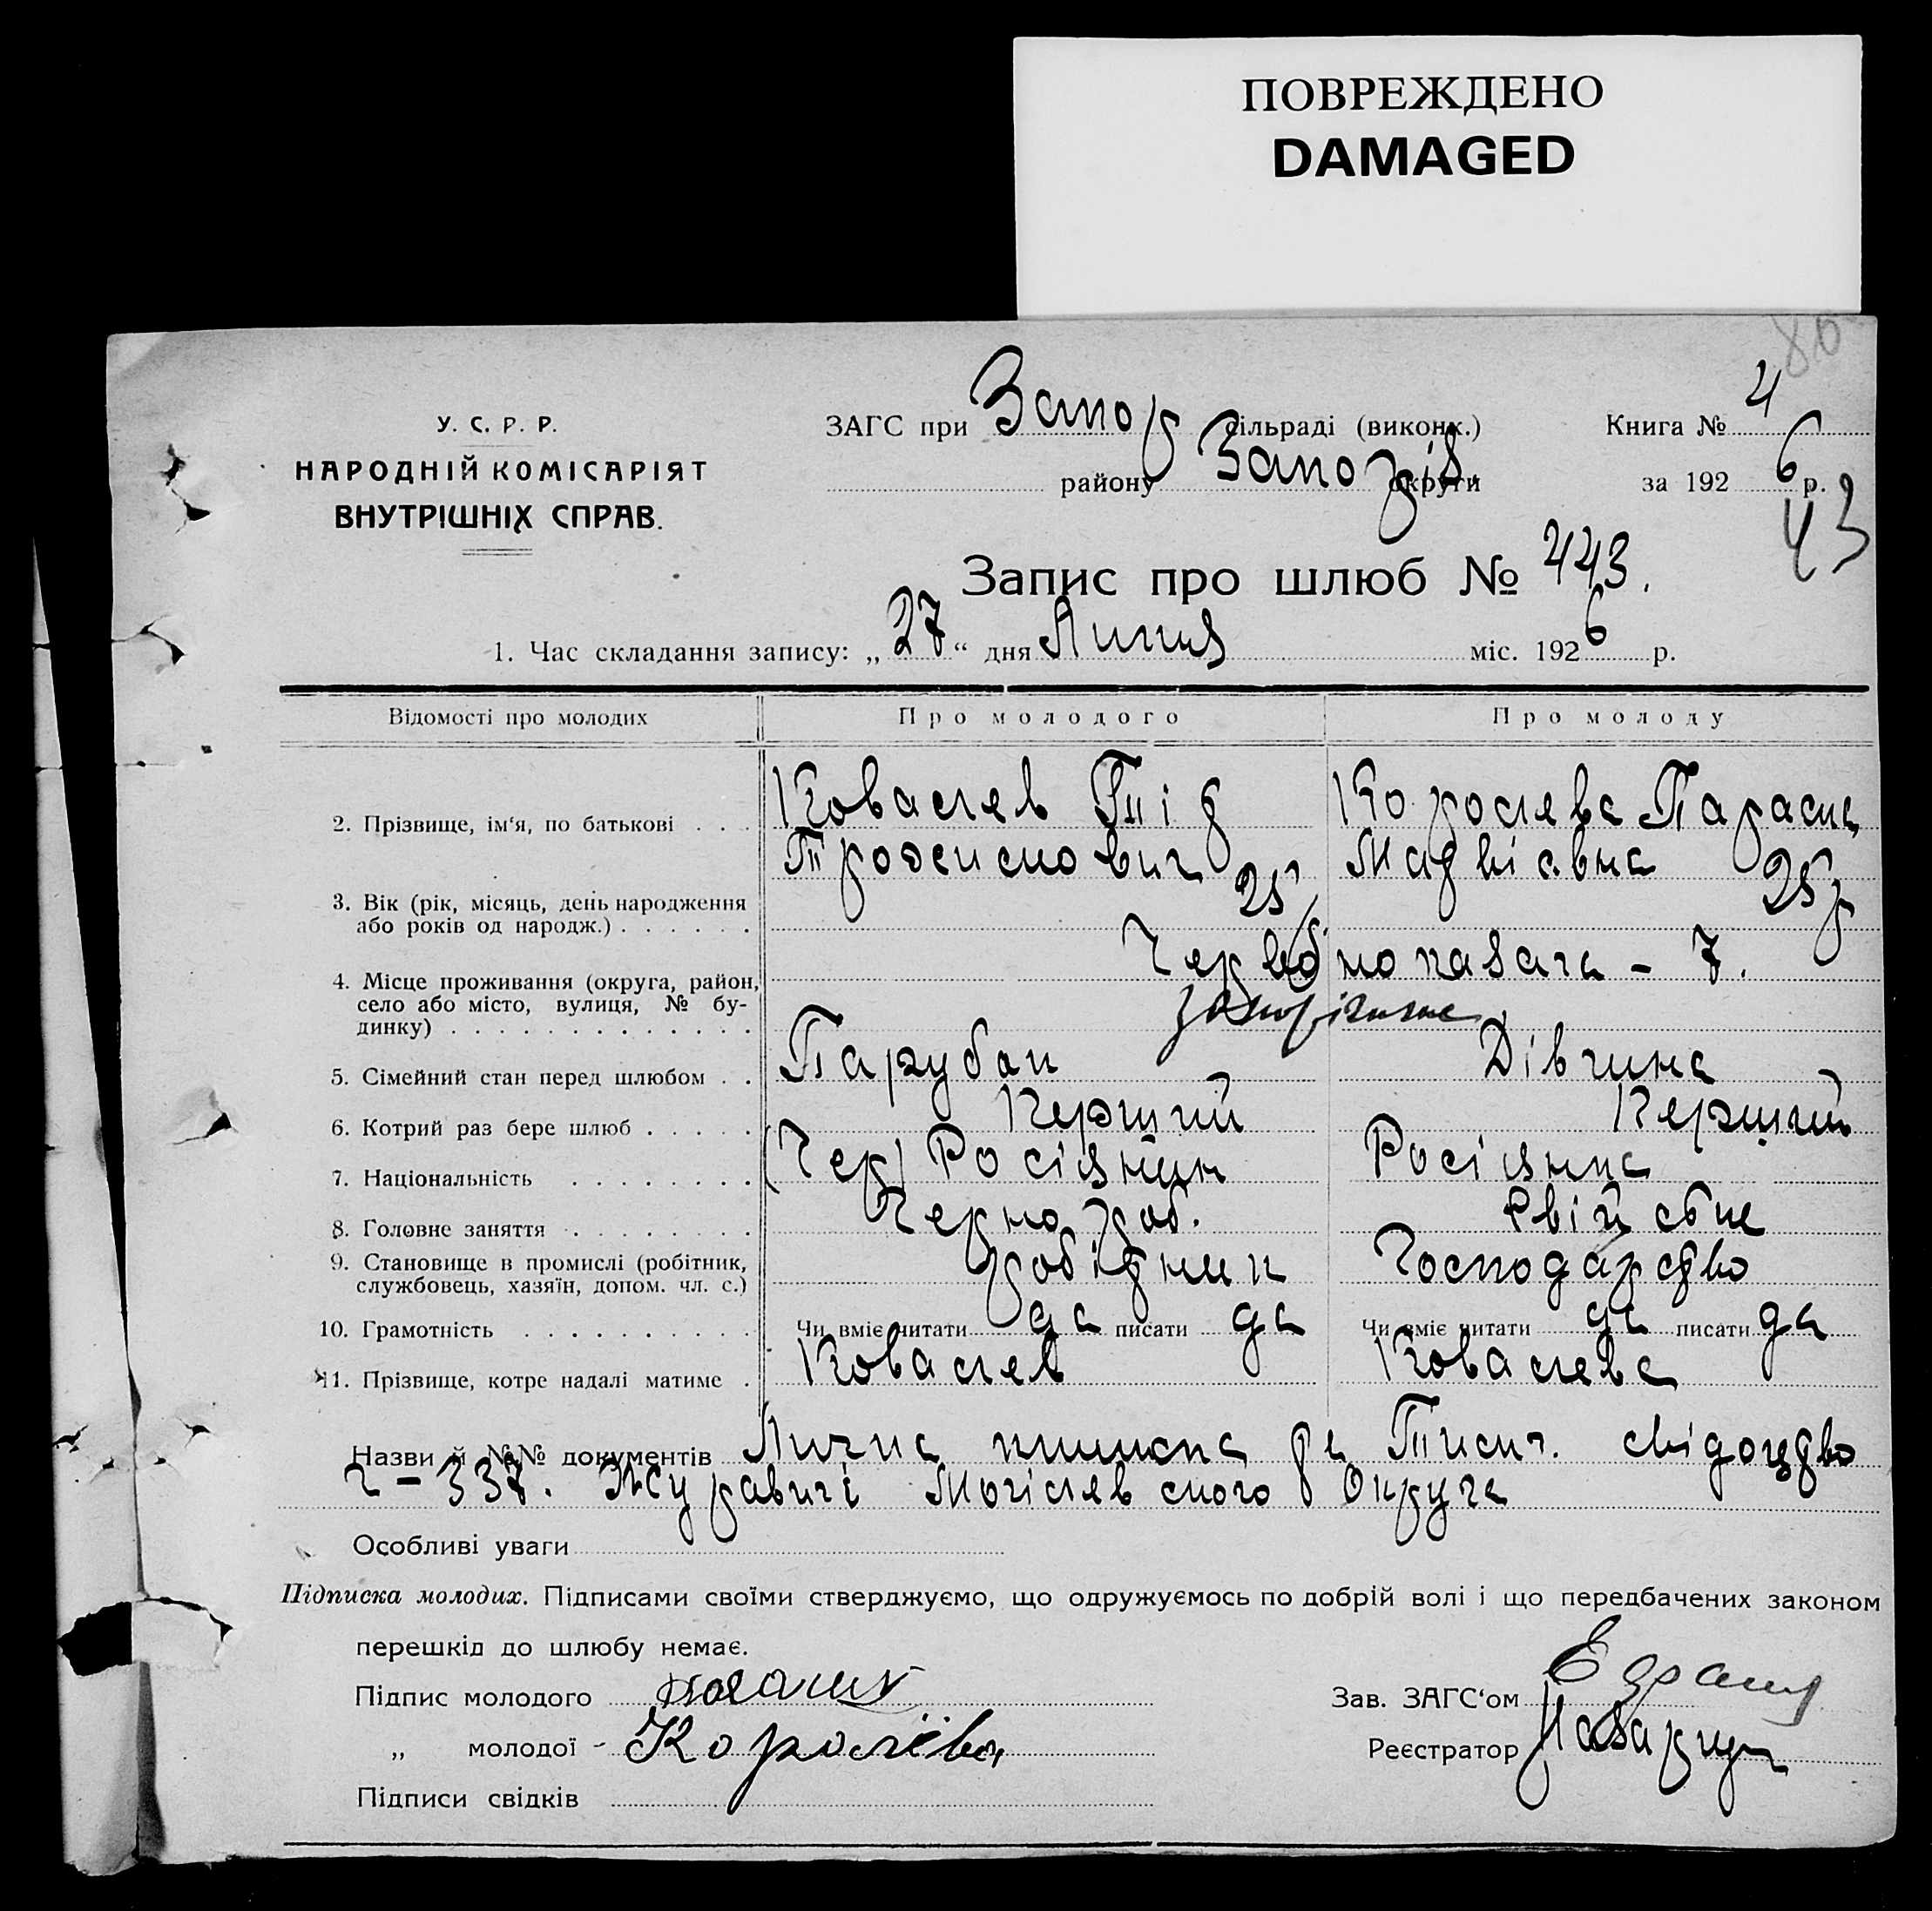 ПОВРЕЖДЕНО
DAMAGED
80
У. С. Р. Р.
НАРОДНІЙ КОМІСАРІЯТ
ВНУТРІШНІХ СПРАВ.
ЗАГС при Запор сільраді (виконк.) Книга № 4
району Запоріз. округи за 1926 р.
43
Запис про шлюб № 443.
1. Час складання запису: „27“ дня Липня міс. 1926 р.
Відомості про молодих Про молодого Про молоду
2. Прізвище, ім‘я, по батькові Ковалев Тіт Трофимович Королева Параска Мадвіевна
3. Вік (рік, місяць, день народження або років од народж.) 25 25 р
4. Місце проживання (округа, район, село або місто, вулиця, № будинку) 7. запоріжжє
5. Сімейний стан перед шлюбом Парубок Дівчина
6. Котрий раз бере шлюб Перший Перший
7. Національність Росіянин Росіянка
8. Головне заняття Чернороб. Свійське
9. Становище в промислі (робітник, службовець, хазяїн, допом. чл. с.) робітник Господарство
10. Грамотність Чи вміє читати да писати да Чи вміє читати да писати да
11. Прізвище, котре надалі матиме Ковалев Ковалева
Назви й №№ документів Лична книжка та свідоцтво
337. Журавичі Могілевского Округа
Особливі уваги
Підписка молодих. Підписами своїми стверджуємо, що одружуємось по добрій волі і що передбачених законом
перешкід до шлюбу немає.
Підпис молодого Зав. ЗАГС‘ом
„ молодої Королёва Реєстратор
Підписи свідків